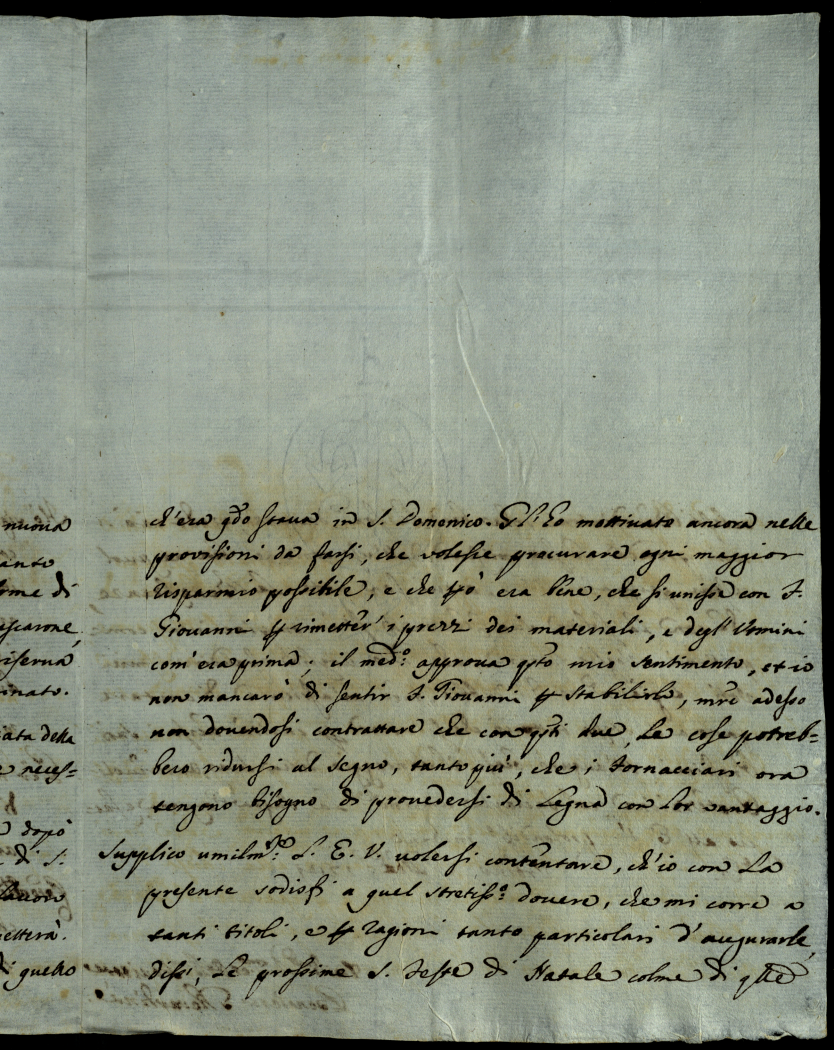 nuova
anto
rme di
escarone,
riserua
inato.
iata della
e neces=
dopò
di S.
etterà.
di quello
ch'era q.do staua in S. Domenico. Gl'ho mottiuato ancora nelle
prouisioni da farsi, che volesse procurare ogni maggior
risparmio possibile, e che però era bene, che si unisse con S.
Giouanni per rimetter i prezzi dei materiali, e degl'Vomini
com'era prima; il med.º approua q.to mio sentimento, et io
non mancarò di sentir S. Giouanni per stabilirlo, mre adesso
non douendosi contrattare che con q.ti due, Le cose potreb=
bero ridursi al segno, tanto più, che i Fornacciari ora
tengono bisogno di prouedersi di Legna con Lor vantaggio.
Supplico umilm.te L. E. V. uolersi contentare, ch'io con La
presente sodisfi a quel stretiss.º douere, che mi corre a
tanti titoli, e per ragioni tanto particolari d'augurarle,
dissi, Le prossime S. Feste di Natale colme di q.lle